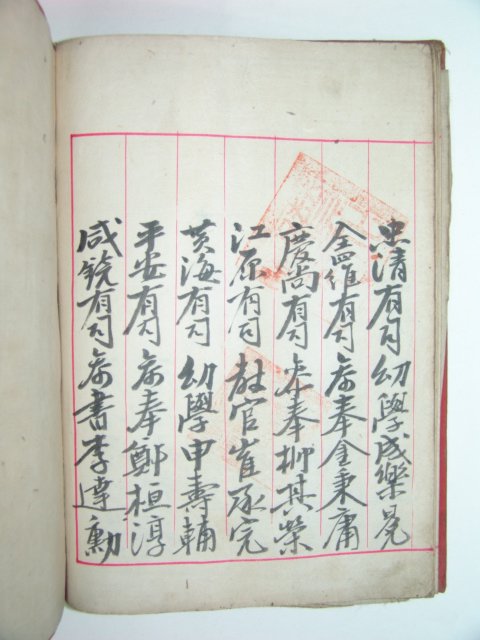 忠清有司 幼學成樂冕
全羅有司 前參奉金秉庸
慶尚有司 參奉柳其榮
江原有司 敎官崔承完
黃海有司 幼學申壽輔
平安有司 前參奉鄭桓淳
咸鏡有司 前書李達勳